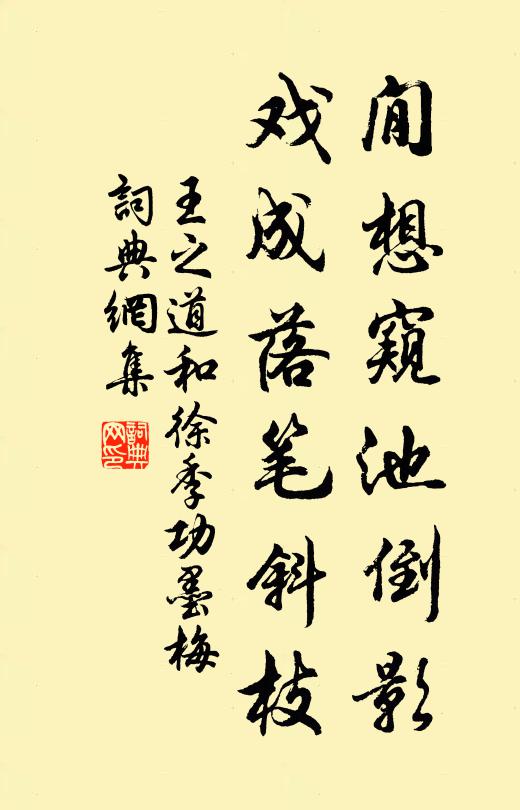 闲想窥池倒影
戏成落笔斜枝
王之道和徐季功墨梅
詞典網集
詞典网印